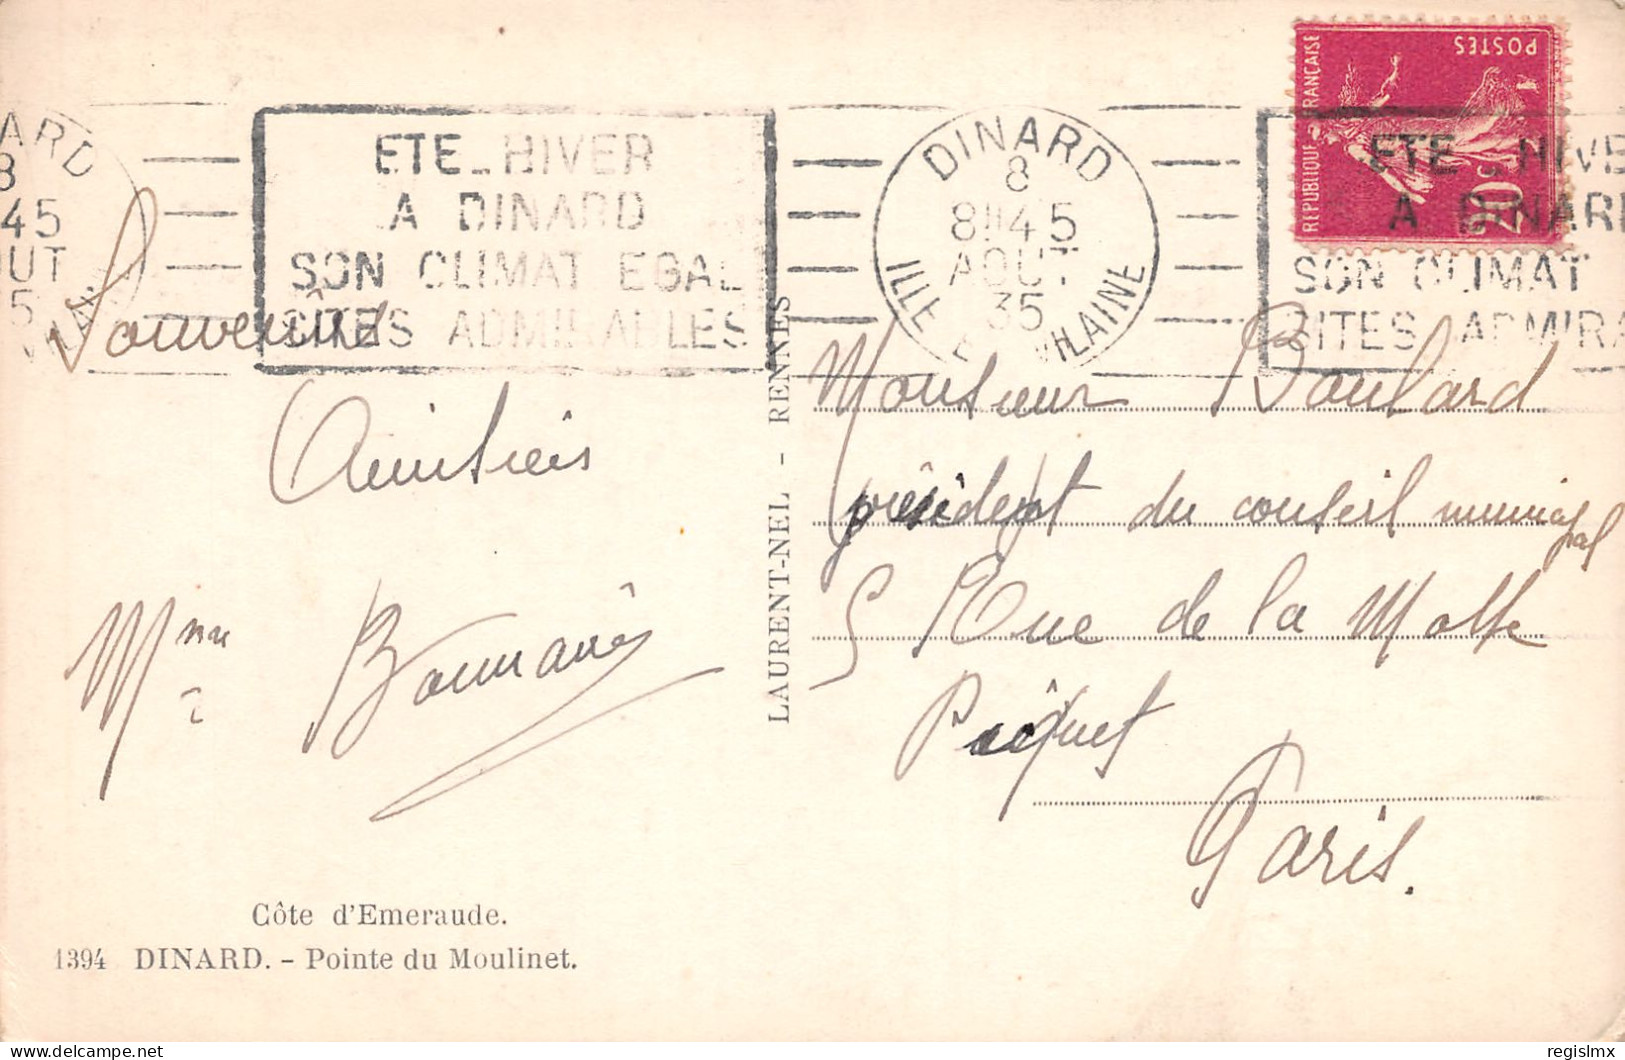 POSTES
REPUBLIQUE FRANÇAISE
20c
ARD
8
45
OUT
5
ETE_HIVER
A DINARD
SON CLIMAT EGAL
SITES ADMIRABLES
DINARD
8
8H45
AOUT
35
ILLE VILAINE
ETE_HIVE
A DINARD
SON CLIMAT
SITES ADMIRA
Souvenirs
Amitiés
Mme
LAURENT-NEL - RENNES
Monsieur Boulard
président du conseil municipal
5 Rue de la Motte
Picquet
Paris.
Côte d'Emeraude.
1394 DINARD. - Pointe du Moulinet.
delcampe.net
regislmx